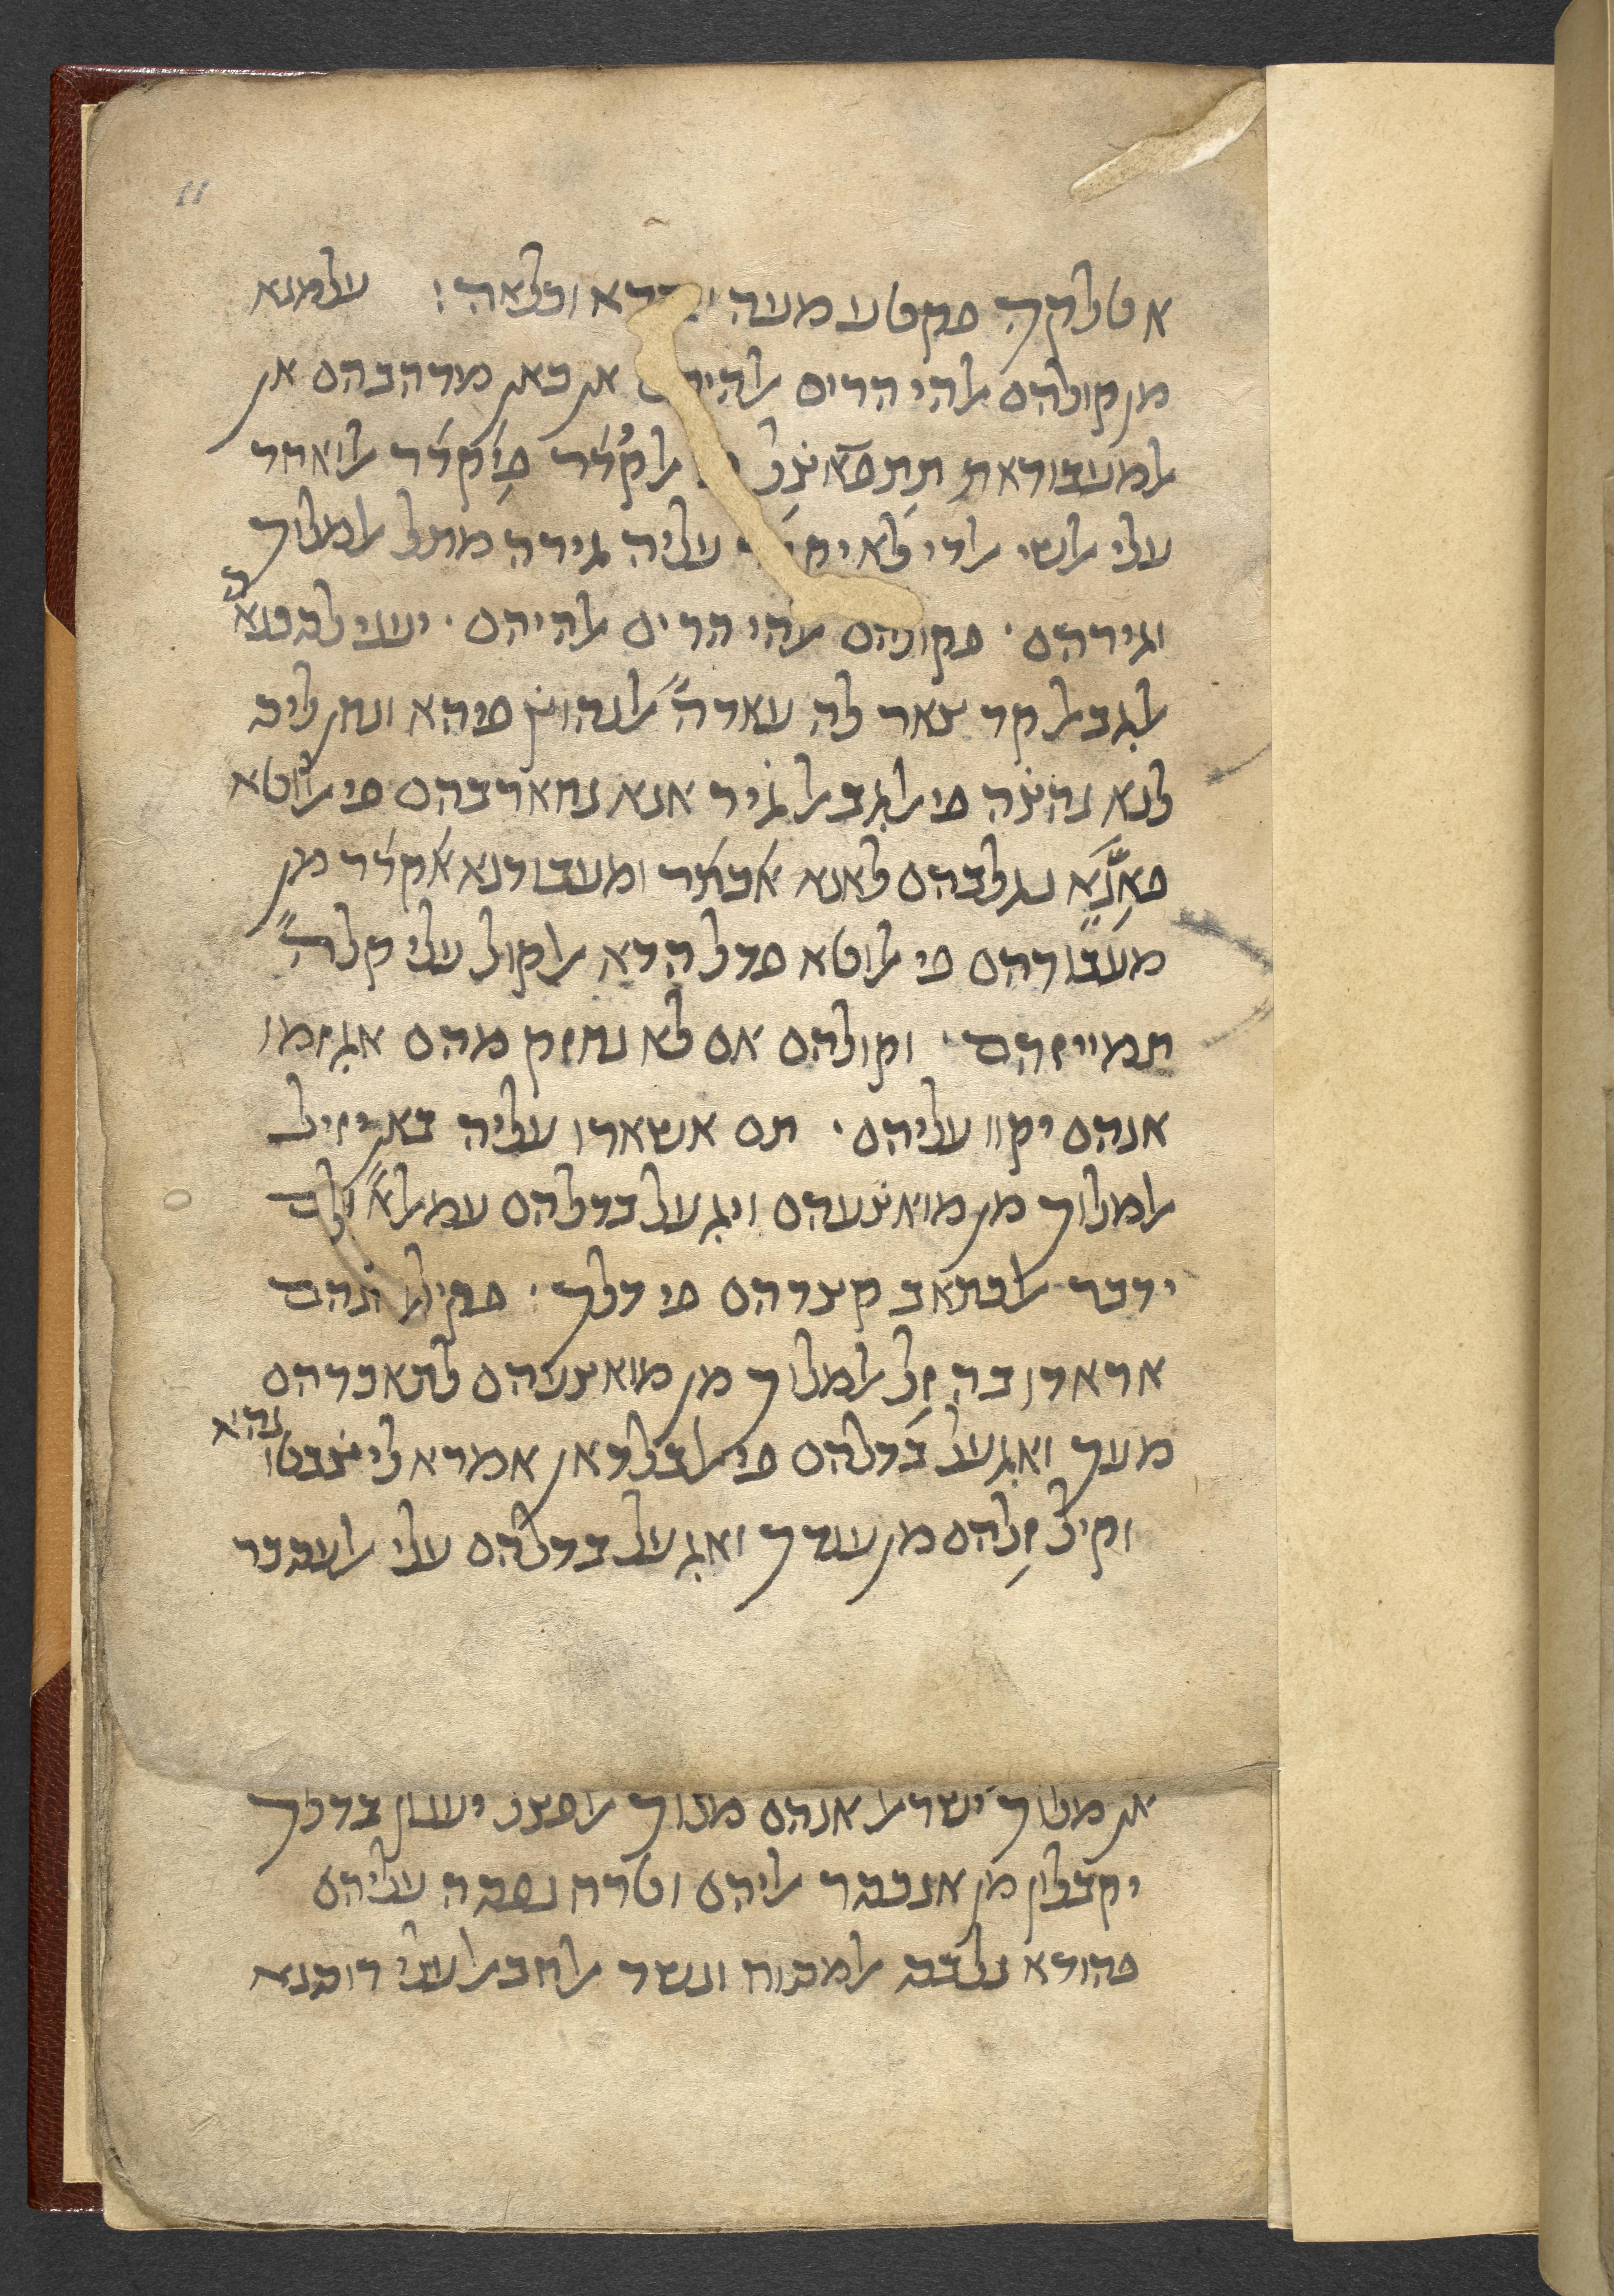 אטלקה פקטע מעה דא וכלאה: עלמנא
מן קולהם אלהי הרים אן כאן מדהבהם אן
אלמעבודאת תתפאצל אלקדר פיקדר אלואחד
עלי אלשי אלדי לא עליה גירה מתל אלמלוך
וגירהם. פקולהם אלהי הרים אלהיהם. יעני לסכנאה
אלגבאל קד צאר לה עאדה אלנהוץ פיהא ונחן ליס
לנא נהצה פי אלגבאל גיר אננא נחארבהם פי אלוטא
פאננא נגלבהם לאננא אכתר ומעבודנא אקדר מן
מעבודהם פי אלוטא פדל הדא אלקול עלי קלה
תמייזהם. וקולהם אם לא נחזק מהם אגזמו
אנהם יקוו עליהם. תם אשארו עליה באן יזיל
אלמלוך מן מואצעהם ויגעל בדלהם עמאלא ולם
ידכר אלכתאב קצדהם פי דלך. פקיל אנהם
אראדו בה זל אלמלוך מן מואצעהם לתאכדהם
מעך ואגעל בדלהם פי אלבלדאן אמרא ליצבטוהא
וקיל זלהם מן ענדך ואגעל בדלהם עלי אלעסכר
אן מלוך ישראל אנהם מלוך אלפצל יענון בדלך
יקבלון מן אנכסר אליהם וטרח נפסה עליהם
פהודא נלבס אלמסוח ונשד אלחבאל עלי רוסנא